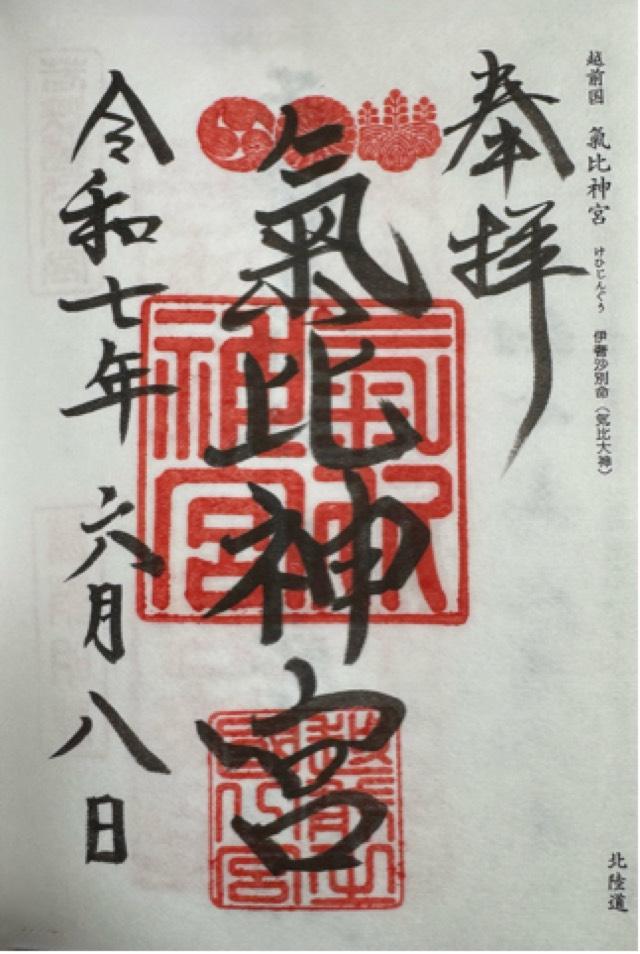 越前国 氣比神宮 けひじんぐう 伊奢沙別命(気比大神)
北陸道
奉拝
氣比神宮
令和七年 六月八日
氣比神宮